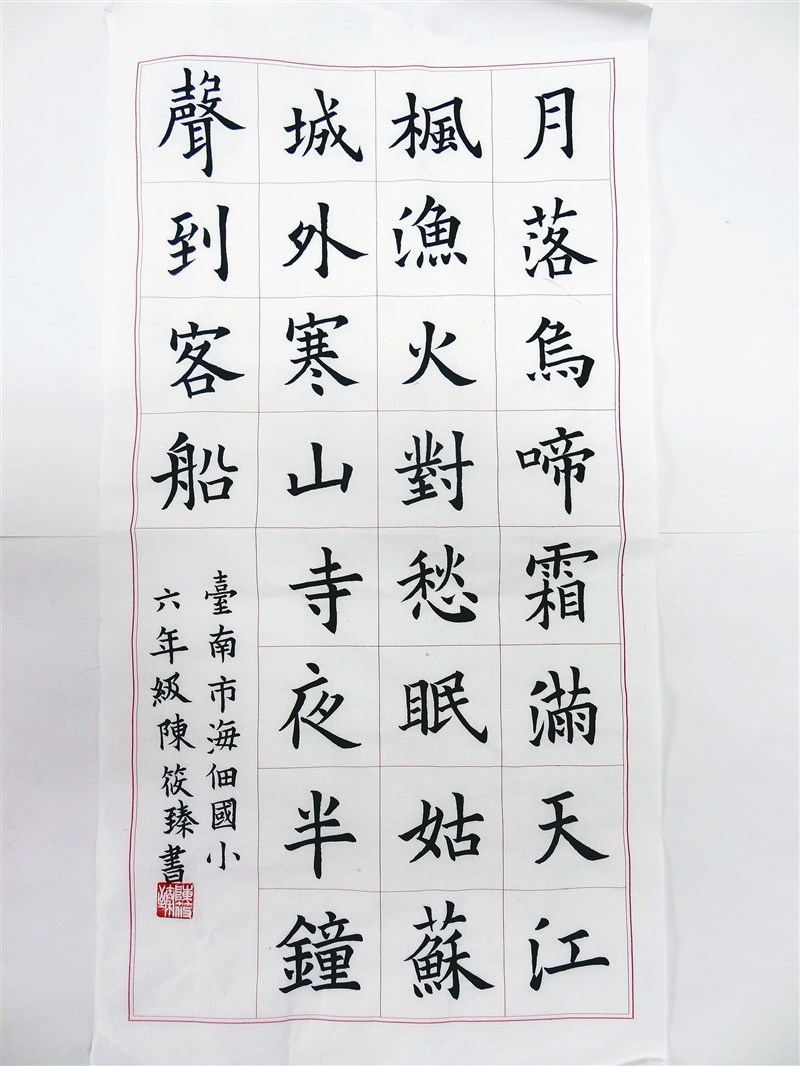 月落烏啼霜滿天江
楓漁火對愁眠姑蘇
城外寒山寺夜半鐘
聲到客船
臺南市海佃國小
六年級陳筱臻書